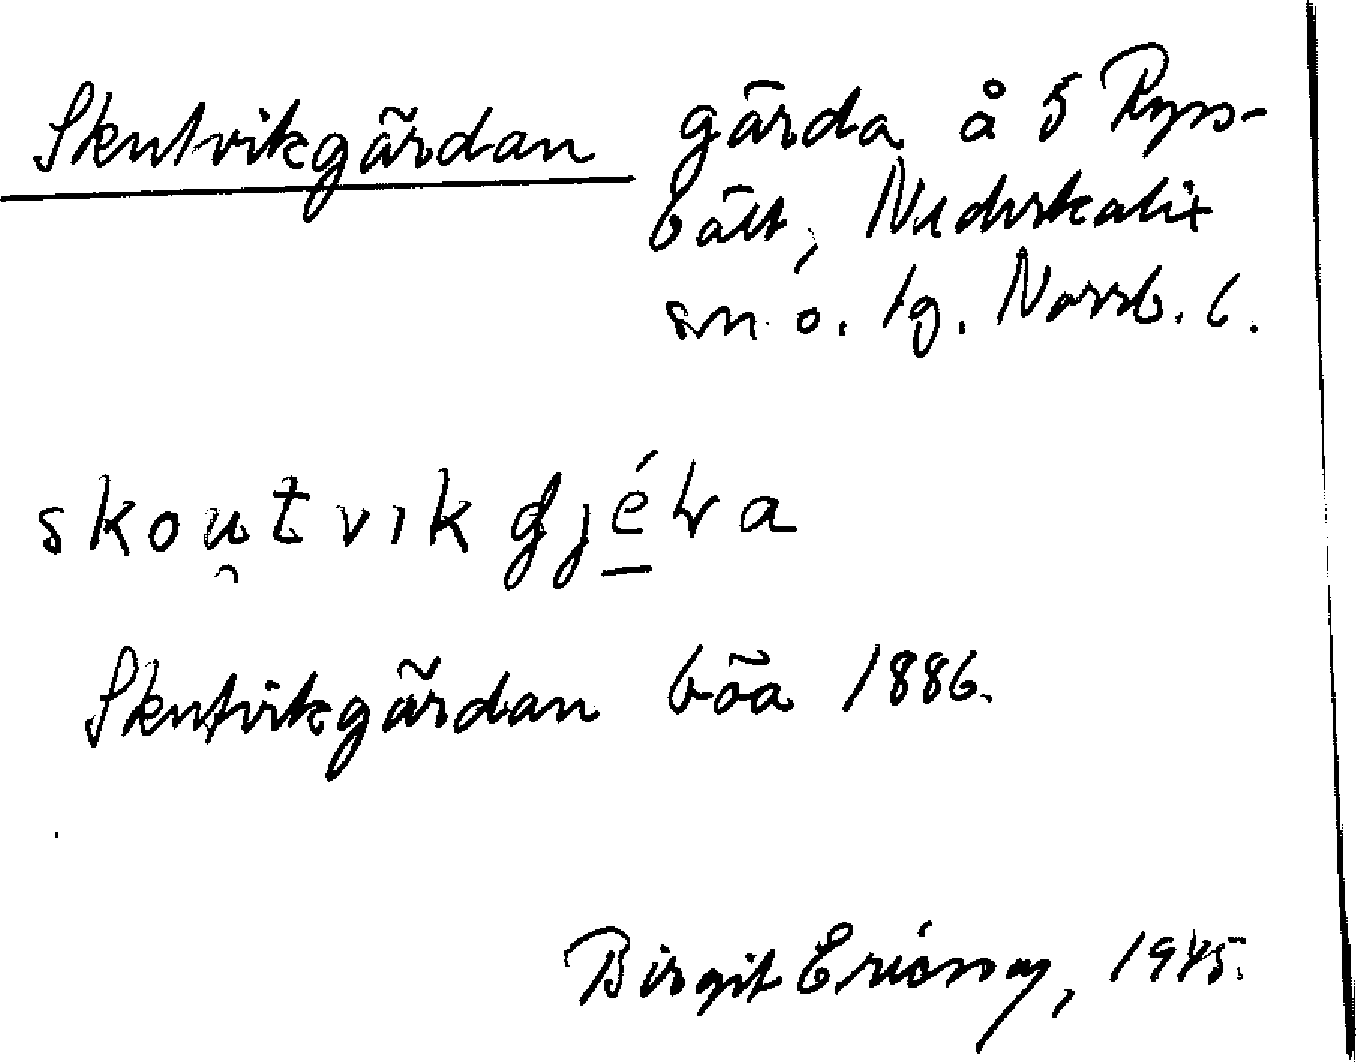 Skutvikgärdan gärda å 5 Ryss-
bält, Nederkalix
sn o. tg. Norrb. l.
skou̯tvikgjéra
Skutvikgärdan bäa 1886.
Birgit Ericson, 1945.